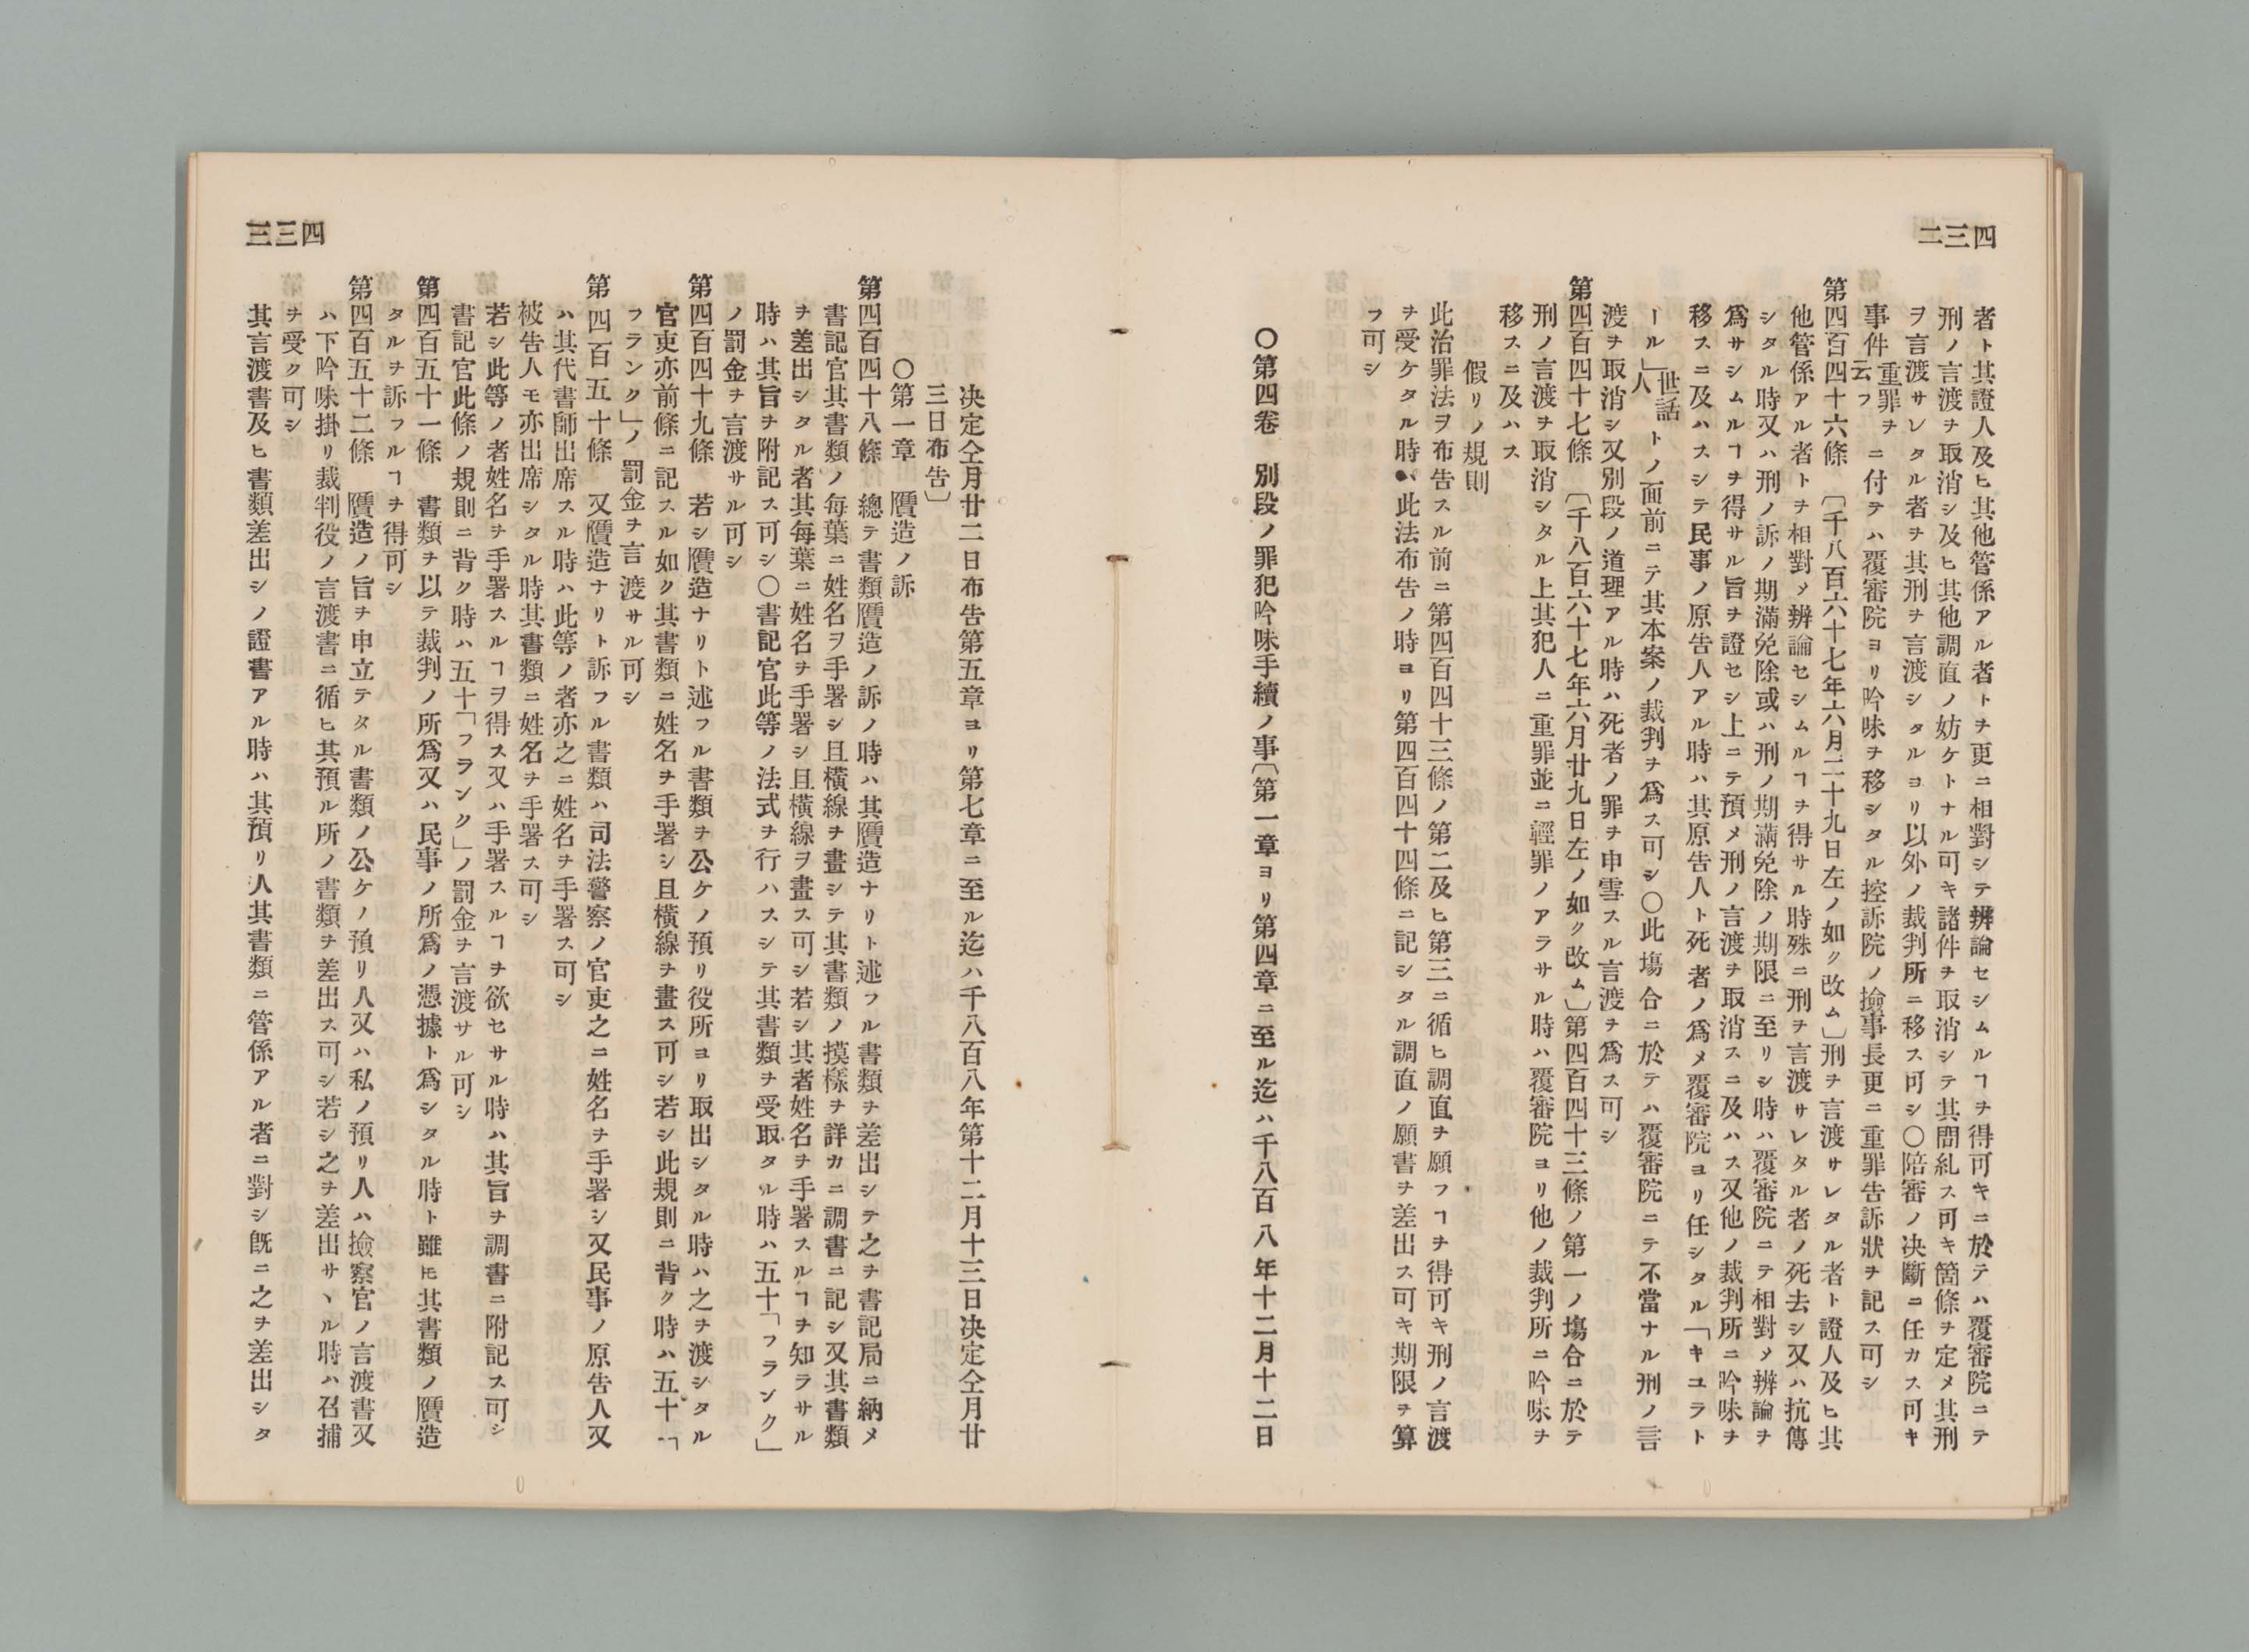 四三二
者ト其證人及ヒ其他管係アル者トヲ更ニ相對シテ辨論セシムルヿヲ得可キニ於テハ覆審院ニテ
刑ノ言渡ヲ取消シ及ヒ其他調直ノ妨ケトナル可キ諸件ヲ取消シテ其問糺ス可キ箇條ヲ定メ其刑
ヲ言渡サレタル者ヲ其刑ヲ言渡シタルヨリ以外ノ裁判所ニ移ス可シ〇陪審ノ决斷ニ任カス可キ
事件重罪ヲ云フニ付テハ覆審院ヨリ吟味ヲ移シタル控訴院ノ撿事長更ニ重罪告訴狀ヲ記ス可シ
第四百四十六條 〔千八百六十七年六月二十九日左ノ如ク改ム〕刑ヲ言渡サレタル者ト證人及ヒ其
他管係アル者トヲ相對メ辨論セシムルヿヲ得サル時殊ニ刑ヲ言渡サレタル者ノ死去シ又ハ抗傳
シタル時又ハ刑ノ訴ノ期滿免除或ハ刑ノ期滿免除ノ期限ニ至リシ時ハ覆審院ニテ相對メ辨論ヲ
爲サシムルヿヲ得サル旨ヲ證セシ上ニテ預メ刑ノ言渡ヲ取消スニ及ハス又他ノ裁判所ニ吟味ヲ
移スニ及ハスシテ民事ノ原告人アル時ハ其原告人ト死者ノ爲メ覆審院ヨリ任シタル「キユラト
ール」世話人トノ面前ニテ其本案ノ裁判ヲ爲ス可シ〇此塲合ニ於テハ覆審院ニテ不當ナル刑ノ言
渡ヲ取消シ又別段ノ道理アル時ハ死者ノ罪ヲ申雪スル言渡ヲ爲ス可シ
第四百四十七條 〔千八百六十七年六月廿九日左ノ如ク改ム〕第四百四十三條ノ第一ノ塲合ニ於テ
刑ノ言渡ヲ取消シタル上其犯人ニ重罪並ニ輕罪ノアラサル時ハ覆審院ヨリ他ノ裁判所ニ吟味ヲ
移スニ及ハス
假リノ規則
此治罪法ヲ布告スル前ニ第四百四十三條ノ第二及ヒ第三ニ循ヒ調直ヲ願フヿヲ得可キ刑ノ言渡
ヲ受ケタル時ハ此法布告ノ時ヨリ第四百四十四條ニ記シタル調直ノ願書ヲ差出ス可キ期限ヲ算
フ可シ
〇第四卷 別段ノ罪犯吟味手續ノ事〔第一章ヨリ第四章ニ至ル迄ハ千八百八年十二月十二日
四三三
决定仝月廿二日布告第五章ヨリ第七章ニ至ル迄ハ千八百八年第十二月十三日决定仝月廿
三日布告〕
〇第一章 贋造ノ訴
第四百四十八條 總テ書類贋造ノ訴ノ時ハ其贋造ナリト述フル書類ヲ差出シテ之ヲ書記局ニ納メ
書記官其書類ノ每葉ニ姓名ヲ手署シ且橫線ヲ畫シテ其書類ノ摸樣ヲ詳カニ調書ニ記シ又其書類
ヲ差出シタル者其每葉ニ姓名ヲ手署シ且橫線ヲ畫ス可シ若シ其者姓名ヲ手署スルヿヲ知ラサル
時ハ其旨ヲ附記ス可シ〇書記官此等ノ法式ヲ行ハスシテ其書類ヲ受取タル時ハ五十「フランク」
ノ罰金ヲ言渡サル可シ
第四百四十九條 若シ贋造ナリト述フル書類ヲ公ケノ預リ役所ヨリ取出シタル時ハ之ヲ渡シタル
官吏亦前條ニ記スル如ク其書類ニ姓名ヲ手署シ且橫線ヲ畫ス可シ若シ此規則ニ背ク時ハ五十「
フランク」ノ罰金ヲ言渡サル可シ
第四百五十條 又贋造ナリト訴フル書類ハ司法警察ノ官吏之ニ姓名ヲ手署シ又民事ノ原告人又
ハ其代書師出席スル時ハ此等ノ者亦之ニ姓名ヲ手署ス可シ
被告人モ亦出席シタル時其書類ニ姓名ヲ手署ス可シ
若シ此等ノ者姓名ヲ手署スルヿヲ得ス又ハ手署スルヿヲ欲セサル時ハ其旨ヲ調書ニ附記ス可シ
書記官此條ノ規則ニ背ク時ハ五十「フランク」ノ罰金ヲ言渡サル可シ
第四百五十一條 書類ヲ以テ裁判ノ所爲又ハ民事ノ所爲ノ憑據ト爲シタル時ト雖𪜈其書類ノ贋造
タルヲ訴フルヿヲ得可シ
第四百五十二條 贋造ノ旨ヲ申立テタル書類ノ公ケノ預リ人又ハ私ノ預リ人ハ撿察官ノ言渡書又
ハ下吟味掛リ裁判役ノ言渡書ニ循ヒ其預ル所ノ書類ヲ差出ス可シ若シ之ヲ差出サヽル時ハ召捕
ヲ受ク可シ
其言渡書及ヒ書類差出シノ證書アル時ハ其預リ人其書類ニ管係アル者ニ對シ旣ニ之ヲ差出シタ